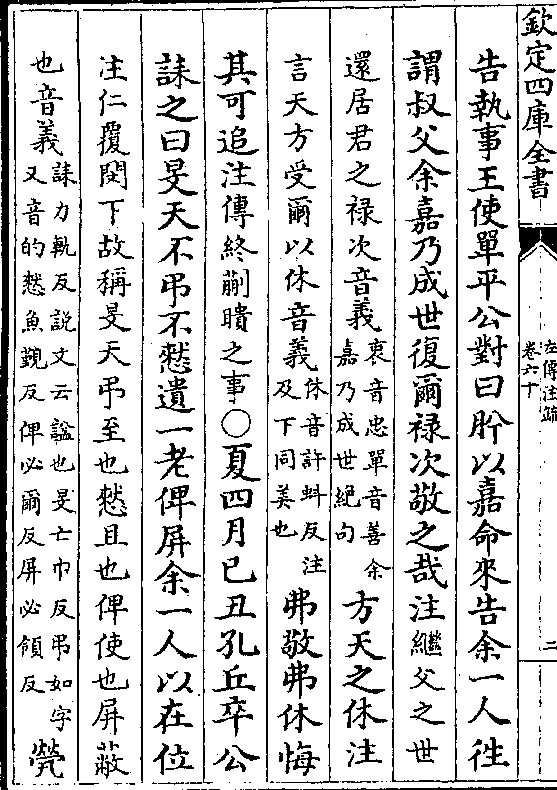 欽定四庫全書
左傳注疏
卷六十
二
告執事王使單平公對曰肸以嘉命來告余一人徃
謂叔父余嘉乃成世復爾禄次敬之哉注繼父之世
還居君之禄次音義衷音忠單音善余嘉乃成世絶句方天之休注
言天方受爾以休音義休音許蚪反注及下同美也弗敬弗休悔
其可追注傳終蒯聵之事〇夏四月己丑孔丘卒公
誄之曰旻天不弔不憖遺一老俾屏余一人以在位
注仁覆閔下故稱旻天弔至也憖且也俾使也屏蔽
也音義誄力軌反説文云諡也旻亡巾反弔如字又音的憖魚覲反俾必爾反屏必領反煢